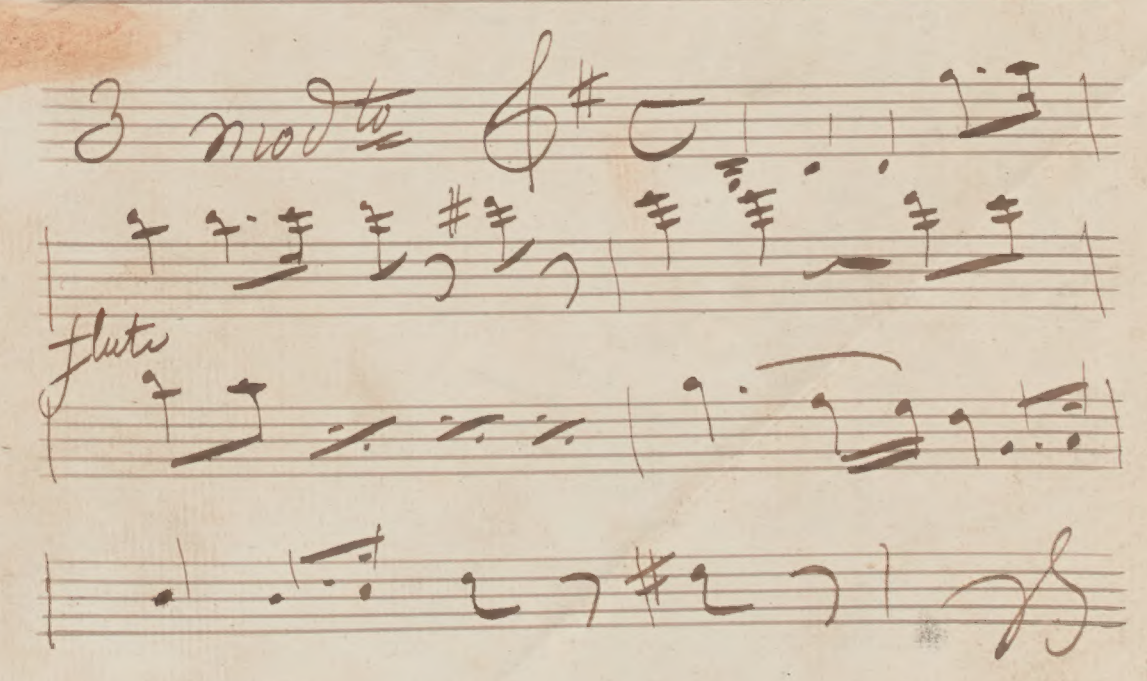 3 modto
flute